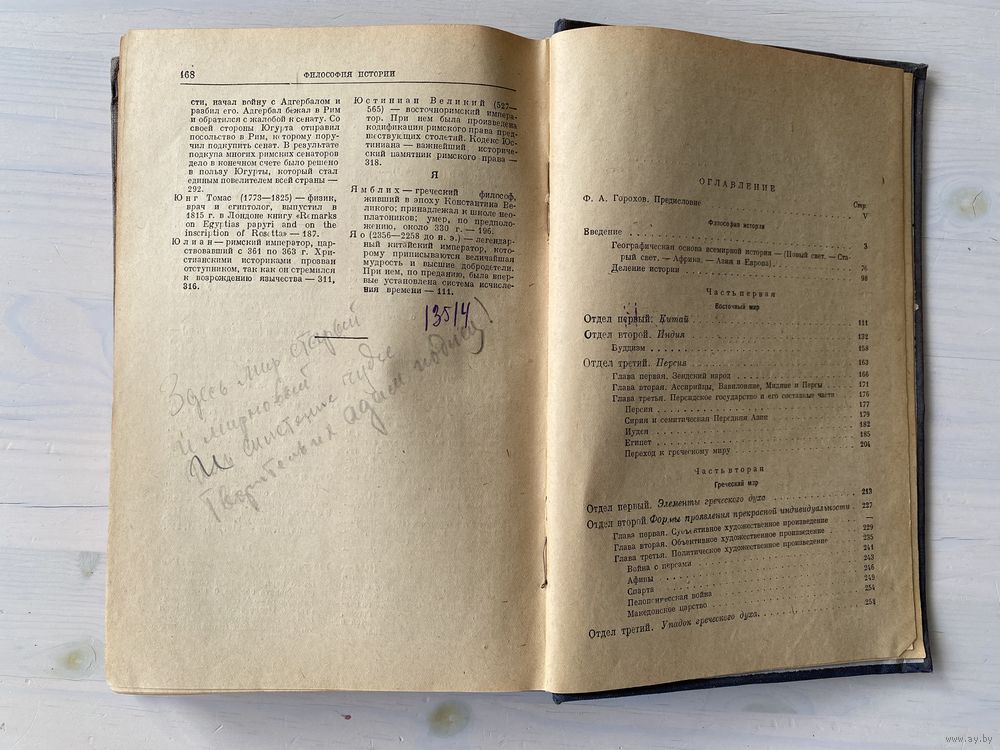 468
ФИЛОСОФИЯ ИСТОРИИ
сти, начал войну с Адгербалом и
разбил его. Адгербал бежал в Рим
и обратился с жалобой к сенату. Со
своей стороны Югурта отправил
посольство в Рим, которому пору-
чил подкупить сенат. В результате
подкупа многих римских сенаторов
дело в конечном счете было решено
в пользу Югурты, который стал
единым повелителем всей страны —
292.
Юнг Томас (1773—1825) — физик,
врач и египтолог, выпустил в
1815 г. в Лондоне книгу «Remarks
on Egyptias papyri and on the
inscription of Rosetta» — 187.
Юлиан — римский император, цар-
ствовавший с 361 по 363 г. Хри-
стианскими историками прозван
отступником, так как он стремился
к возрождению язычества — 311,
316.
Юстиниан Великий (527—
565) — восточноримский импера-
тор. При нем была произведена
кодификация римского права пред-
шествующих столетий. Кодекс Юс-
тиниана — важнейший историче-
ский памятник римского права —
318.
Я
Ямблих — греческий философ,
живший в эпоху Константина Ве-
ликого; принадлежал к школе нео-
платоников; умер, по предполо-
жению, около 330 г. — 196.
Яо (2356—2258 до н. э.) — легендар-
ный китайский император, кото-
рому приписываются величайшая
мудрость и высшие добродетели.
При нем, по преданию, была впер-
вые установлена система исчисле-
ния времени — 111.
13514
Здесь мир старый
и мир новый
ОГЛАВЛЕНИЕ
Стр.
Ф. А. Горохов. Предисловие V
Философия истории
Введение 3
Географическая основа всемирной истории — (Новый свет. — Ста-
рый свет. — Африка. — Азия и Европа) 76
Деление истории 98
Часть первая
Восточный мир
Отдел первый. Китай 111
Отдел второй. Индия 132
Буддизм 158
Отдел третий. Персия 163
Глава первая. Зендский народ 166
Глава вторая. Ассирийцы, Вавилоняне, Мидяне и Персы 171
Глава третья. Персидское государство и его составные части 176
Персия 177
Сирия и семитическая Передняя Азия 179
Иудея 182
Египет 185
Переход к греческому миру 204
Часть вторая
Греческий мир
Отдел первый. Элементы греческого духа 213
Отдел второй. Формы проявления прекрасной индивидуальности 227
Глава первая. Субъективное художественное произведение —
Глава вторая. Объективное художественное произведение 229
Глава третья. Политическое художественное произведение 235
Война с персами 241
Афины 243
Спарта 246
Пелопонесская война 249
Македонское царство 254
Отдел третий. Упадок греческого духа. 258
www.ay.by